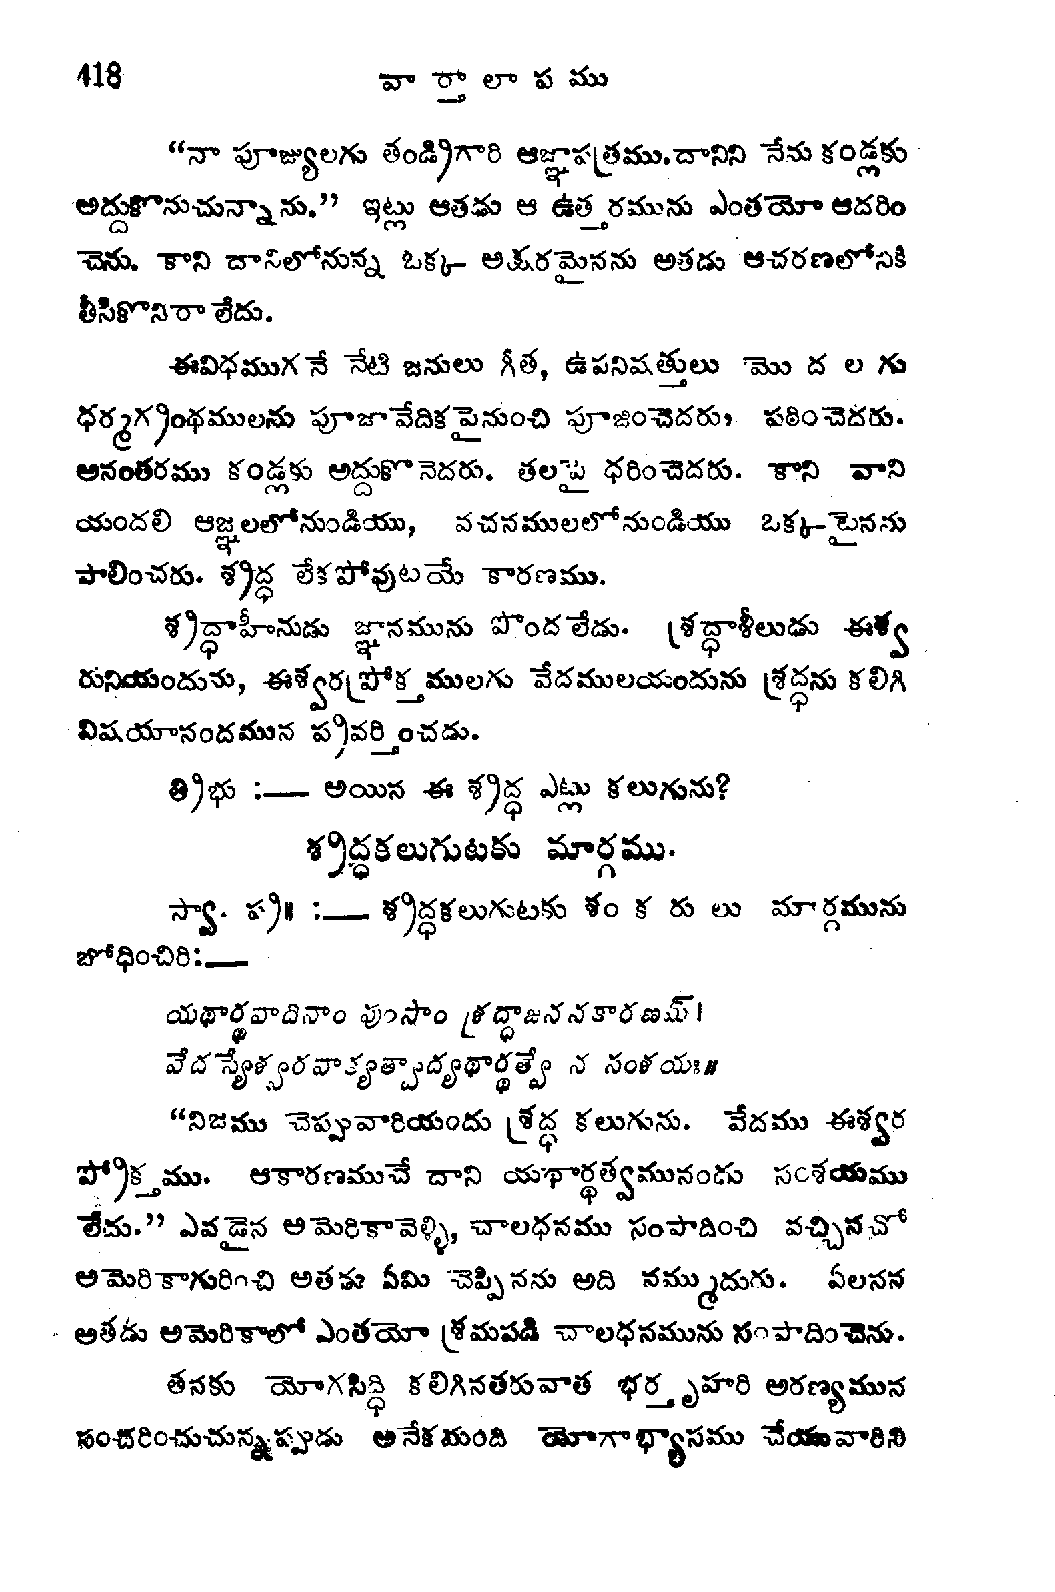 418
వా ర్తా లా ప ము
“నా పూజ్యులగు తండ్రిగారి ఆజ్ఞాపత్రము. దానిని నేను కండ్లకు
అద్దుకొనుచున్నాను.” ఇట్లు ఆతడు ఆ ఉత్తరమును ఎంతయో ఆదరిం
చెను. కాని దానిలోనున్న ఒక్క అక్షరమైనను అతడు ఆచరణలోనికి
తీసికొనిరా లేదు.
ఈవిధముగనే నేటి జనులు గీత, ఉపనిషత్తులు మొ ద ల గు
ధర్మగ్రంథములను పూజా వేదికపైనుంచి పూజించెదరు, పఠించెదరు.
అనంతరము కండ్లకు అద్దుకొనెదరు. తలపై ధరించెదరు. కాని వాని
యందలి ఆజ్ఞలలోనుండియు, వచనములలోనుండియు ఒక్కటైనను
పాలించరు. శ్రద్ధ లేకపోవుటయే కారణము.
శ్రద్ధాహీనుడు జ్ఞానమును పొందలేడు. శ్రద్ధాశీలుడు ఈశ్వ
రునియందును, ఈశ్వరప్రోక్తములగు వేదములయందును శ్రద్ధను కలిగి
విషయానందమున ప్రవర్తించడు.
త్రిభు :— అయిన ఈ శ్రద్ధ ఎట్లు కలుగును?
శ్రద్ధకలుగుటకు మార్గము.
స్వా. ప్ర॥ :— శ్రద్ధకలుగుటకు శం క రు లు మార్గమును
బోధించిరి:—
యథార్థవాదినాం పుంసాం శ్రద్ధాజననకారణమ్।
వేదస్యేశ్వరవాక్యత్వాద్యథార్థత్వే న సంశయః॥
“నిజము చెప్పువారియందు శ్రద్ధ కలుగును. వేదము ఈశ్వర
ప్రోక్తము. ఆకారణముచే దాని యథార్థత్వమునందు సంశయము
లేదు.” ఎవడైన అమెరికావెళ్ళి, చాలధనము సంపాదించి వచ్చినచో
అమెరికాగురించి అతడు ఏమి చెప్పినను అది నమ్ముదుగు. ఏలనన
అతడు అమెరికాలో ఎంతయో శ్రమపడి చాలధనమును సంపాదించెను.
తనకు యోగసిద్ధి కలిగినతరువాత భర్తృహరి అరణ్యమున
సంచరించుచున్నప్పుడు అనేకమంది యోగాభ్యాసము చేయువారిని